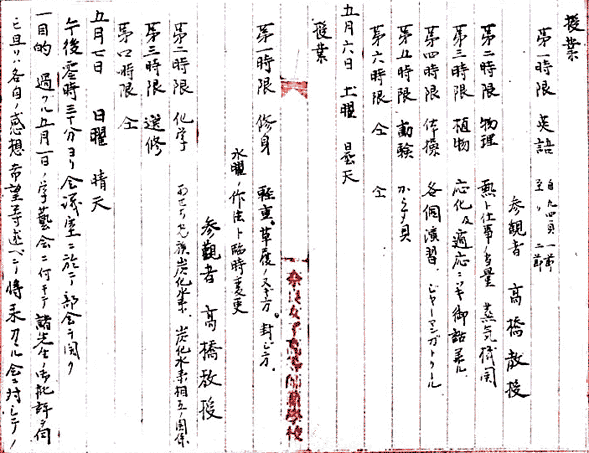 授業
第一時限 英語 自九四頁一節 至〃二節
参観者 高橋教授
第二時限 物理 熱ト仕事ノ当量 蒸気機関
第三時限 植物 応化及適応ニツキ御話アル
第四時限 体操 各個演習、ジャーマンガトリール
第五時限 動験 からす貝
第六時限 仝 仝
五月六日 土曜 曇天
授業
第一時限 修身 軽重。草履ノ 方。封じ方。
水曜ノ作法ト臨時変更
参観者 高橋教授
第二時限 化学 あせちれん族炭化水素、炭化水素相互ノ関係
第三時限 選修
第四時限 仝
五月七日 日曜 晴天
午後零時三十分ヨリ会議室ニ於テ部会ヲ開ク
一目的 過グル五月一日ノ学藝会ニ付キテ諸先生ノ御批評ヲ伺
ヒ且ツハ各自ノ感想希望等述ベテ将来ノ 会ニ対シテノ
奈良女子高等師範学校